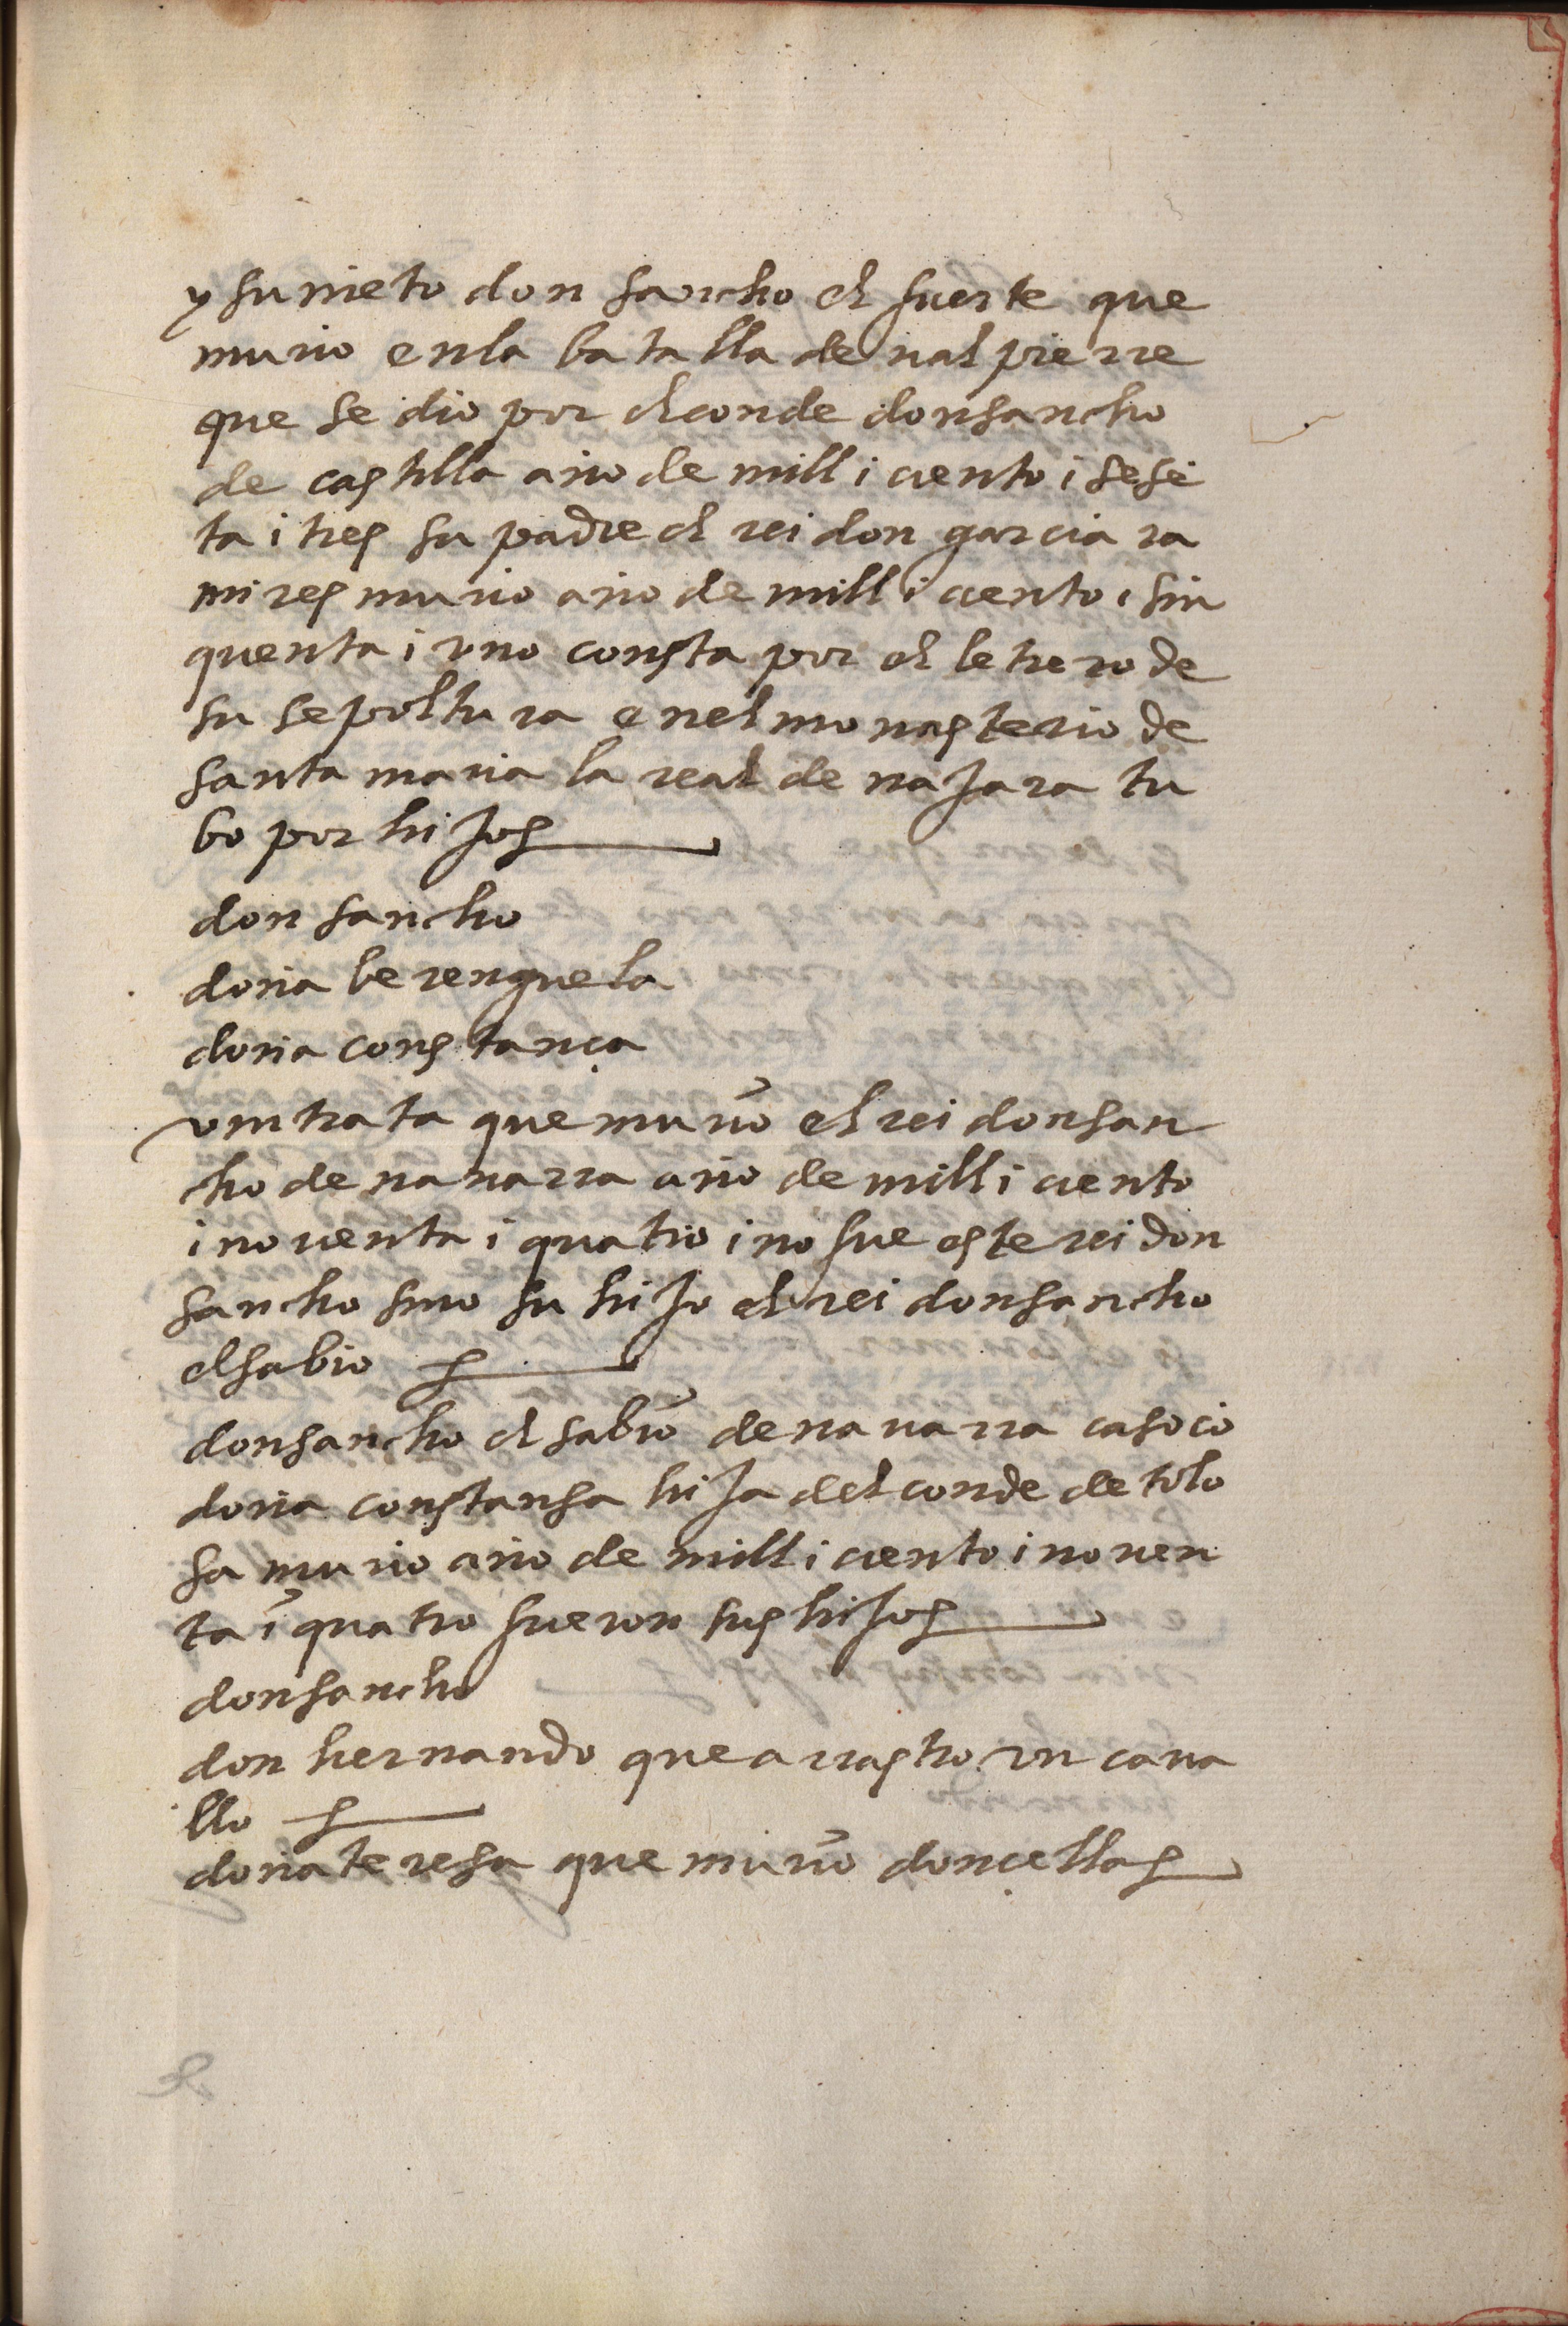 y su nieto don sancho el fuerte que
murio en la batalla de valpierre
que se dio por el conde don sancho
de castilla año de mill i ciento i sese
ta i tres su padre el rei don garcia ra
mires murio año de mill i ciento i sin
quenta i uno consta por el letrero de
su sepoltura en el monasterio de
santa maria la real de najara tu
bo por hijos
don sancho
doña berenguela
doña constança
untrata que murio el rei don san
cho de navarra año de mill i ciento
i noventa i quatro i no fue este rei don
sancho sino su hijo el rei don sancho
el sabio
don sancho el sabio de navarra caso cō
doña constansa hija del conde de tolo
sa murio año de mill i ciento i noven
ta i quatro fueron sus hijos
don sancho
don hernando que arrastro un cava
llo
doña teresa que murio doncellas